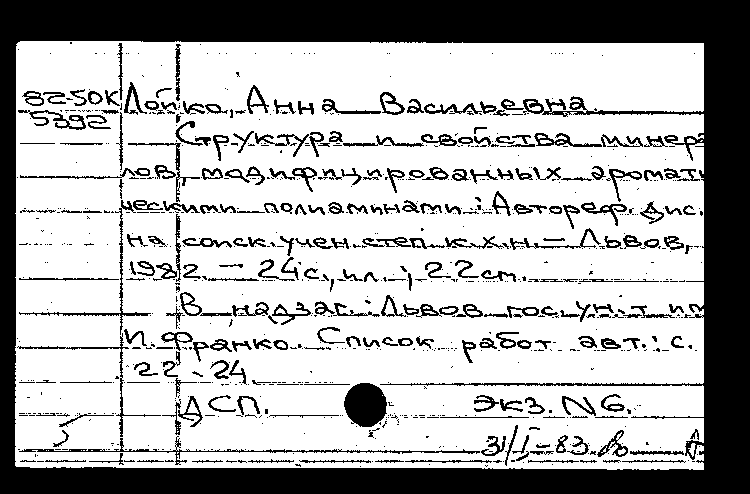 82-50К Лойко, Анна Васильевна.
5392
Структура и свойства минера
лов, модифицированных аромати
ческими полиаминами: Автореф. Дис.
на соиск. учен. степ. к. х. н. — Львов,
1982. — 24 с., ил.; 22 см.
В надзаг.: Львов гос. ун-т им
И. Франко. Список работ авт.: с.
22-24.
ДСП. экз. N6.
5 31/I-83